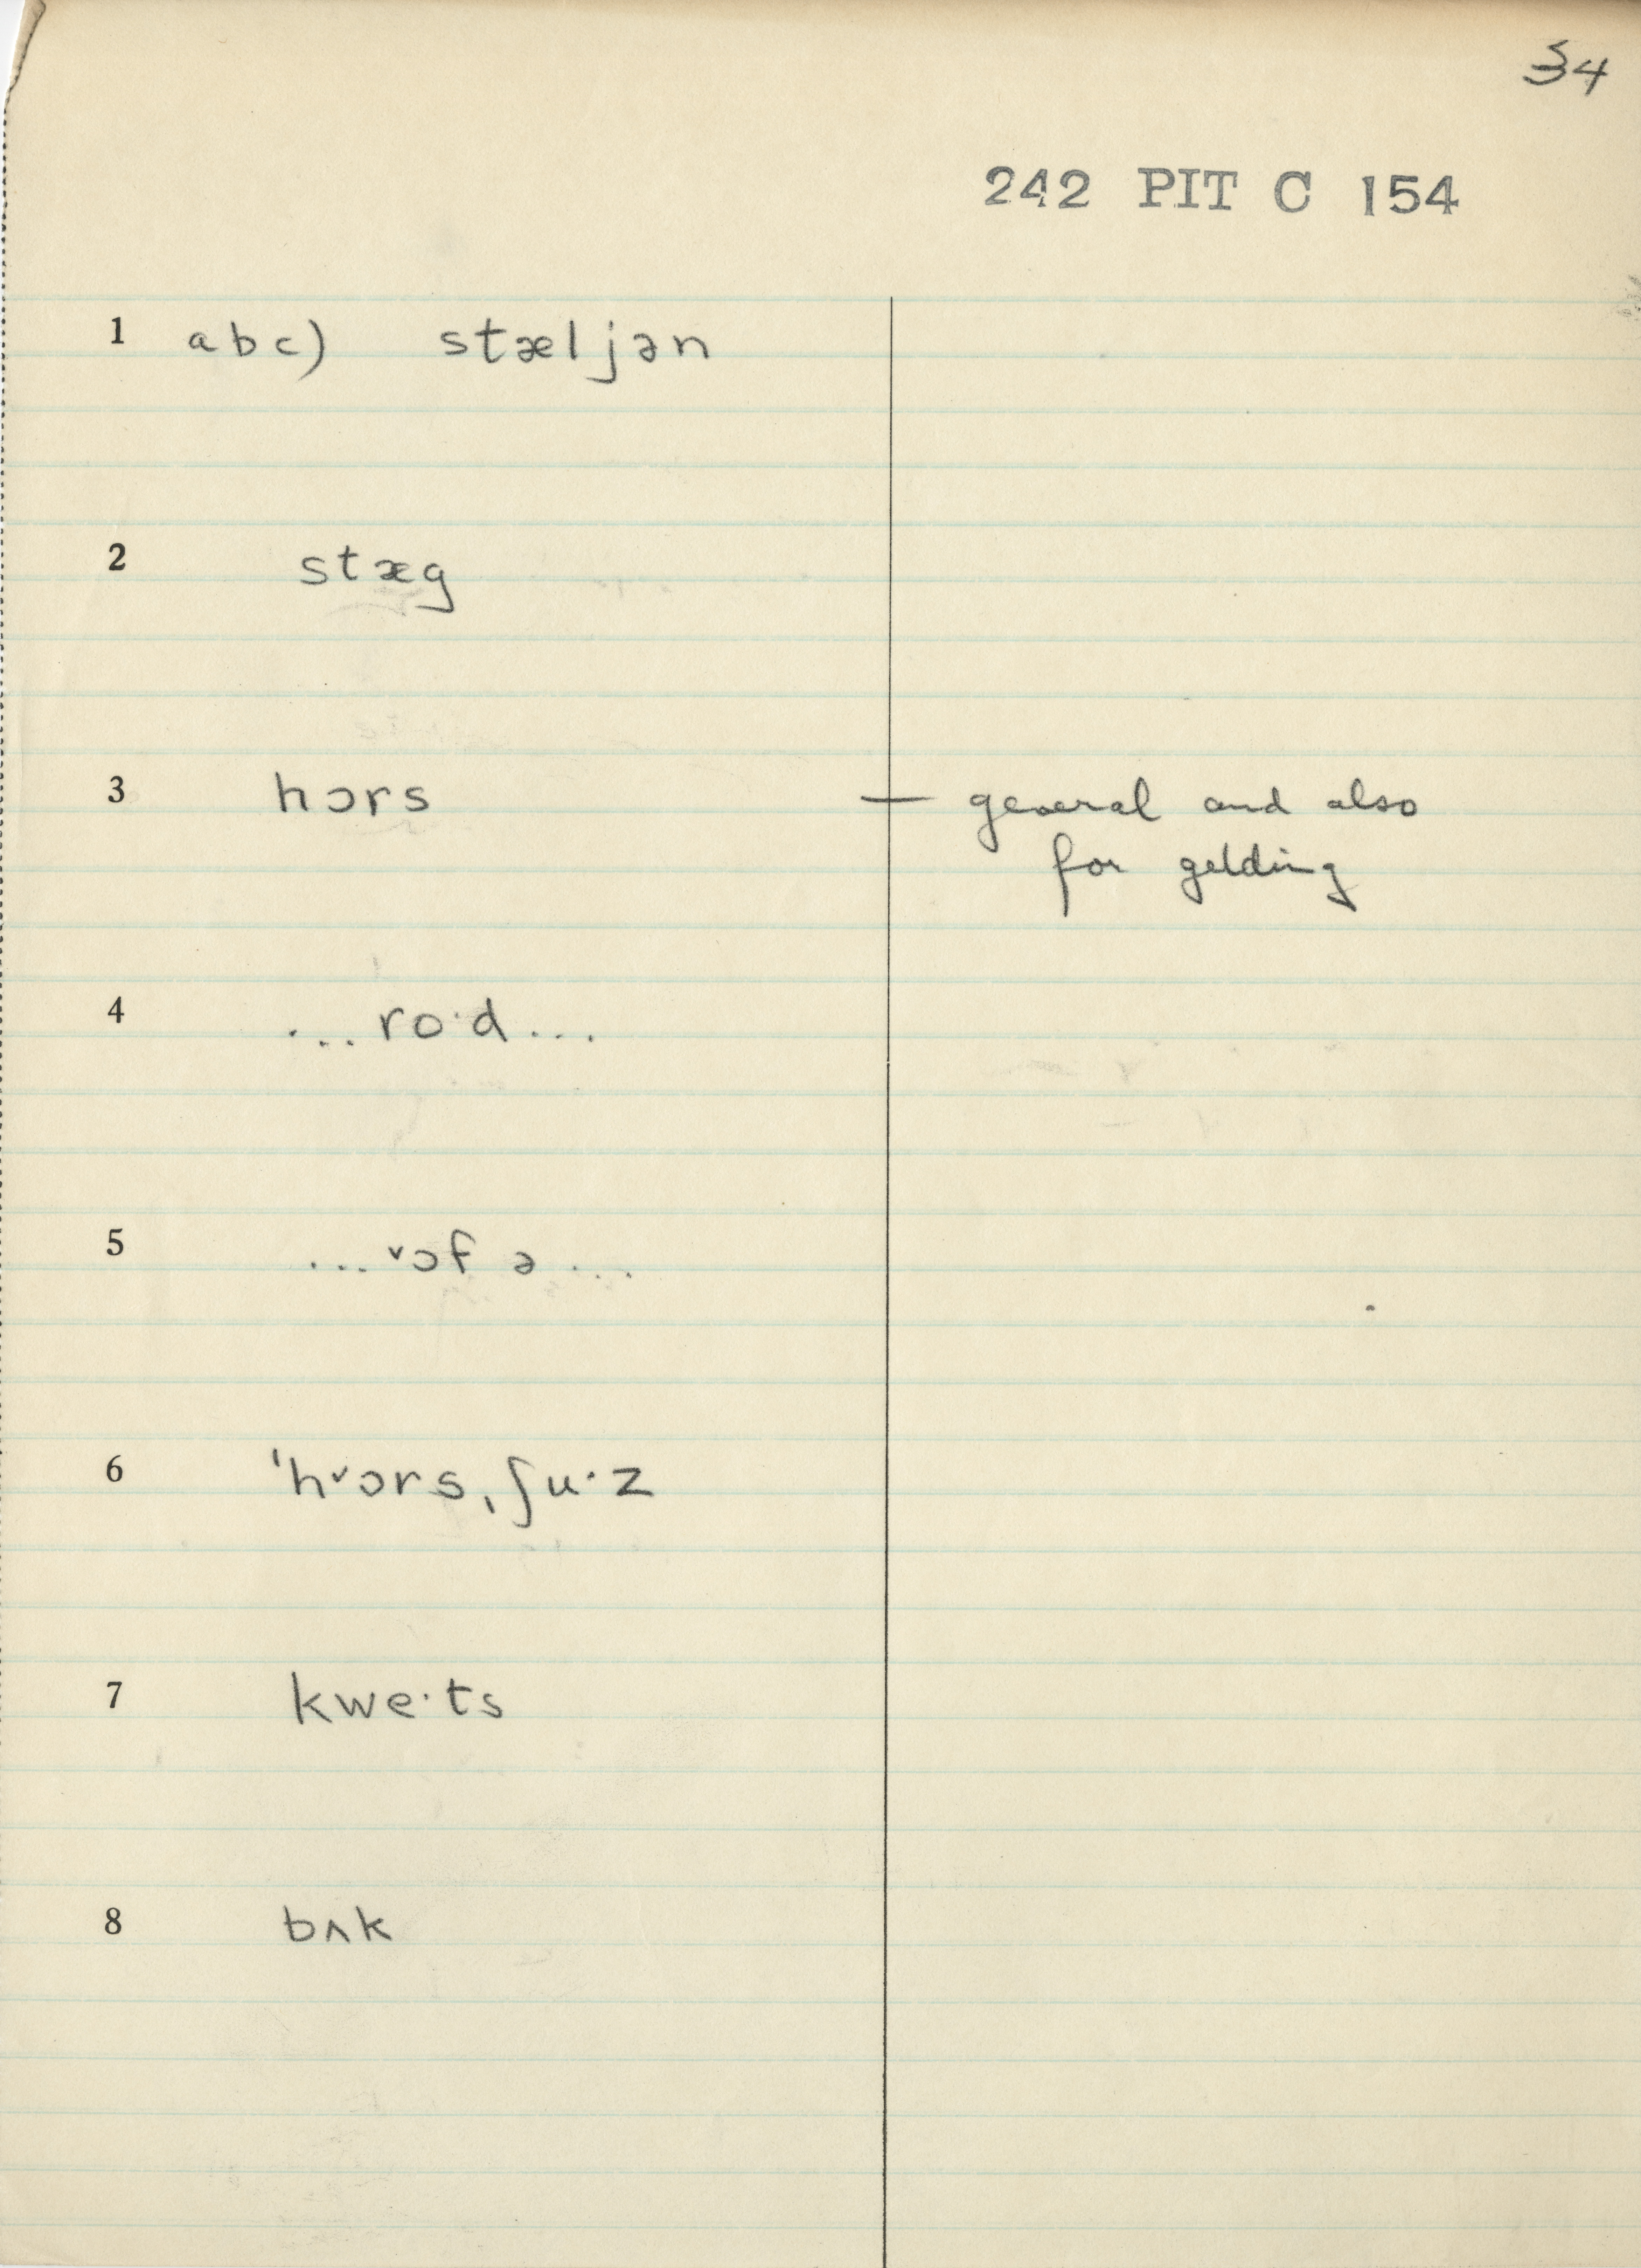 34
242 PIT C 154
1 abc) stæljən
2 stæg
3 hɔrs — general and also
for gelding
4 ... ro·d ...
5 ... ˅ɔf ə ...
6 ˈh˅ɔrsˌʃu·z
7 kwe·ts
8 bʌk